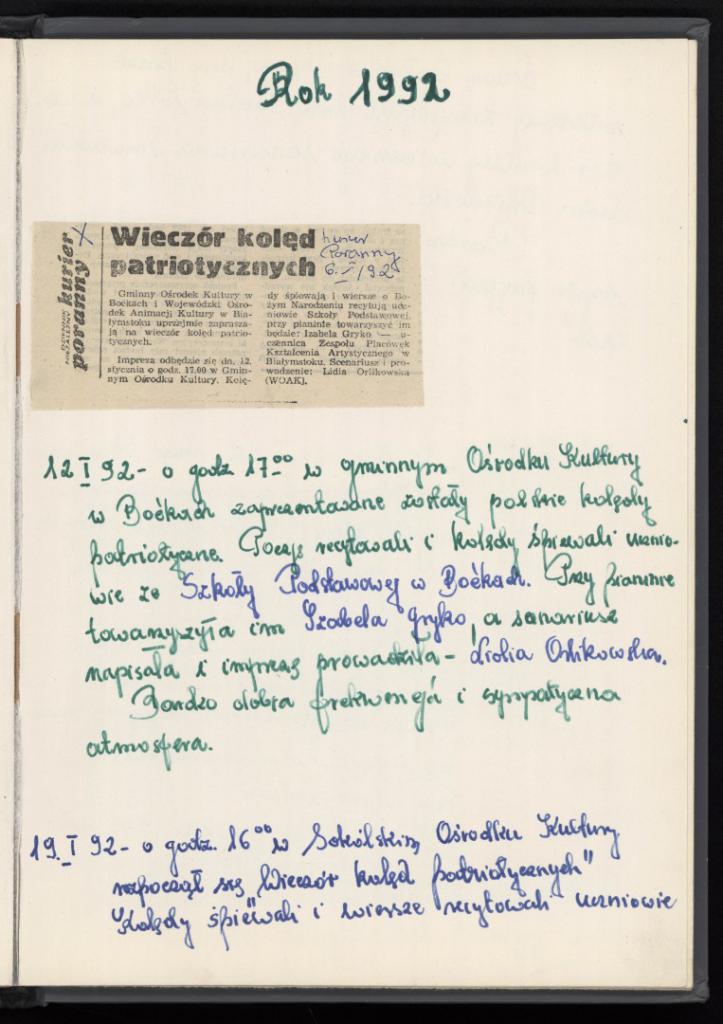 Rok 1992
DZIENNIK
NIEZALEŻNY
kurier
poranny
X
Wieczór kolęd
patriotycznych
kurier
Poranny
6.I/92
Gminny Ośrodek Kultury w
Boćkach i Wojewódzki Ośro-
dek Animacji Kultury w Bia-
łymstoku uprzejmie zaprasza-
ją na wieczór kolęd patrio-
tycznych.
Impreza odbędzie się dn. 12.
stycznia o godz. 17.00 w Gmin-
nym Ośrodku Kultury. Kolę-
dy śpiewają i wiersze o Bo-
żym Narodzeniu recytują ucz-
niowie Szkoły Podstawowej,
przy pianinie towarzyszyć im
będzie: Izabela Gryko — u-
czennica Zespołu Placówek
Kształcenia Artystycznego w
Białymstoku. Scenariusz i pro-
wadzenie: Lidia Orlikowska
(WOAK).
12 I 92 - o godz. 17⁰⁰ w gminnym Ośrodku Kultury
w Boćkach zaprezentowane zostały polskie kolędy
patriotyczne. Poezję recytowali i kolędy śpiewali ucznio-
wie ze Szkoły Podstawowej w Boćkach. Przy pianinie
towarzyszyła im Izabela Gryko, a scenariusz
napisała i imprezę prowadziła - Lidia Orlikowska.
Bardzo dobra frekwencja i sympatyczna
atmosfera.
19.I 92 - o godz. 16⁰⁰ w Sokólskim Ośrodku Kultury
rozpoczął się "Wieczór kolęd patriotycznych"
Kolędy śpiewali i wiersze recytowali uczniowie